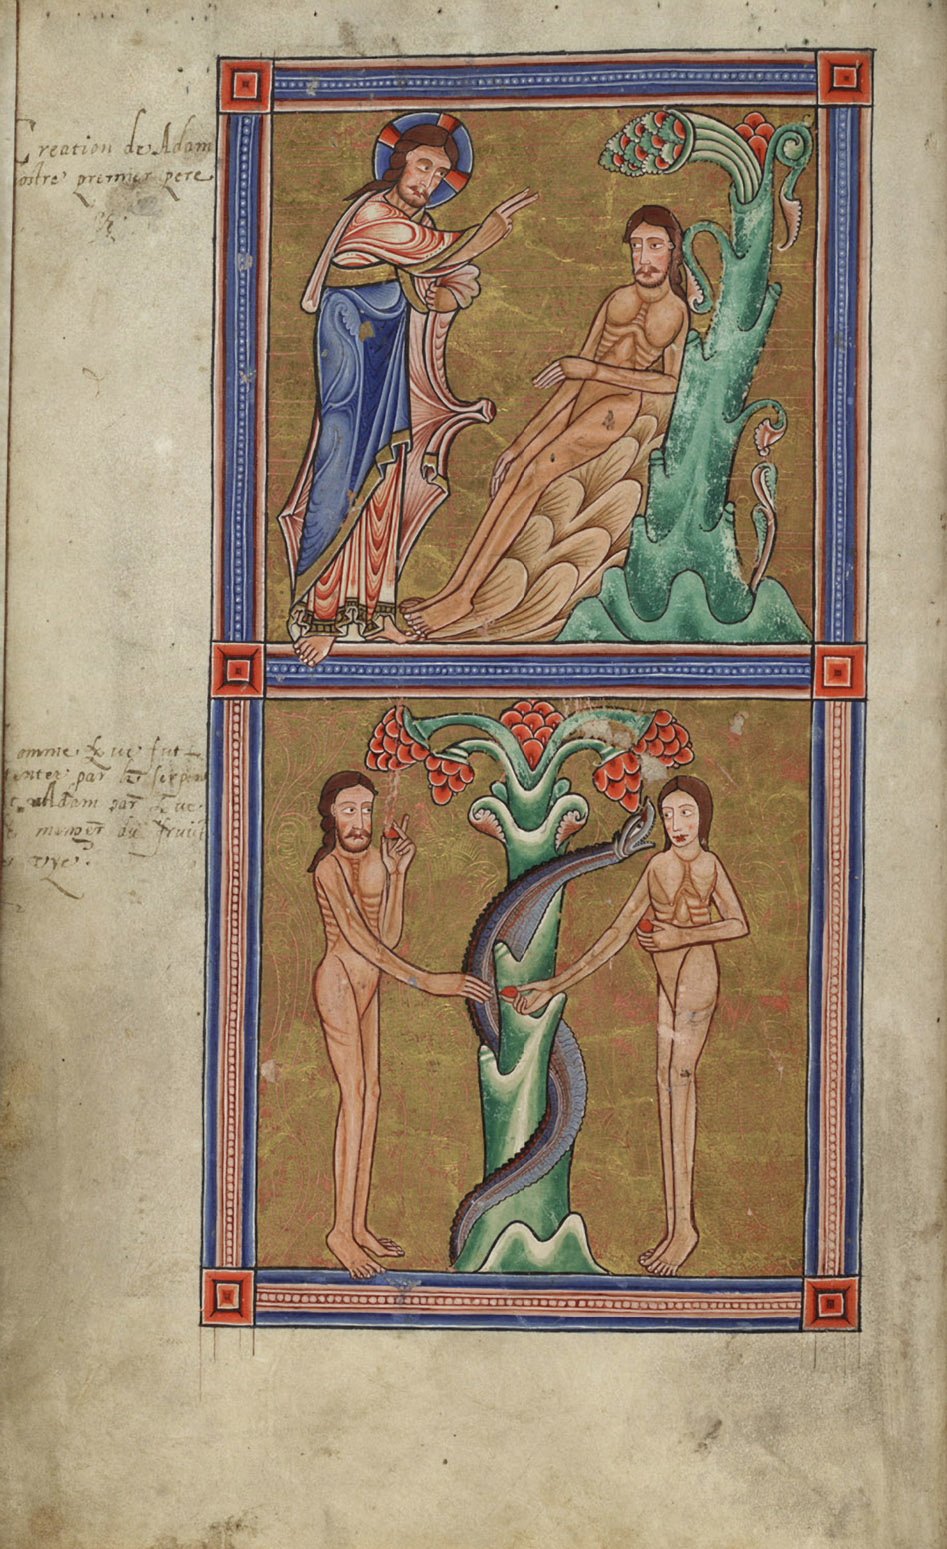 Creation de Adam
ostre premier pere
omme Eve fut
enter par le serpen
Adam par Eve
du fruit
vye.